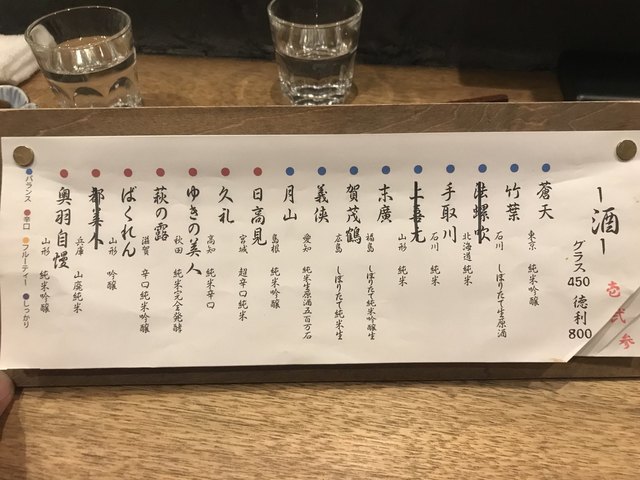 ー酒ー
グラス
450
徳利
800
壱
弐
参
蒼天
東京 純米吟醸
竹葉
石川 しぼりたて生原酒
法螺吹
北海道 純米
手取川
石川 純米
上喜元
山形 純米
末廣
福島 しぼりたて純米吟醸生
賀茂鶴
広島 しぼりたて純米生
義侠
愛知 純米生原酒五百万石
月山
島根 純米吟醸
日高見
宮城 超辛口純米
久礼
高知 純米辛口
ゆきの美人
秋田 純米完全発酵
萩の露
滋賀 辛口純米吟醸
ばくれん
山形 吟醸
都美人
兵庫 山廃純米
奥羽自慢
山形 純米吟醸
バランス 辛口 フルーティー しっかり